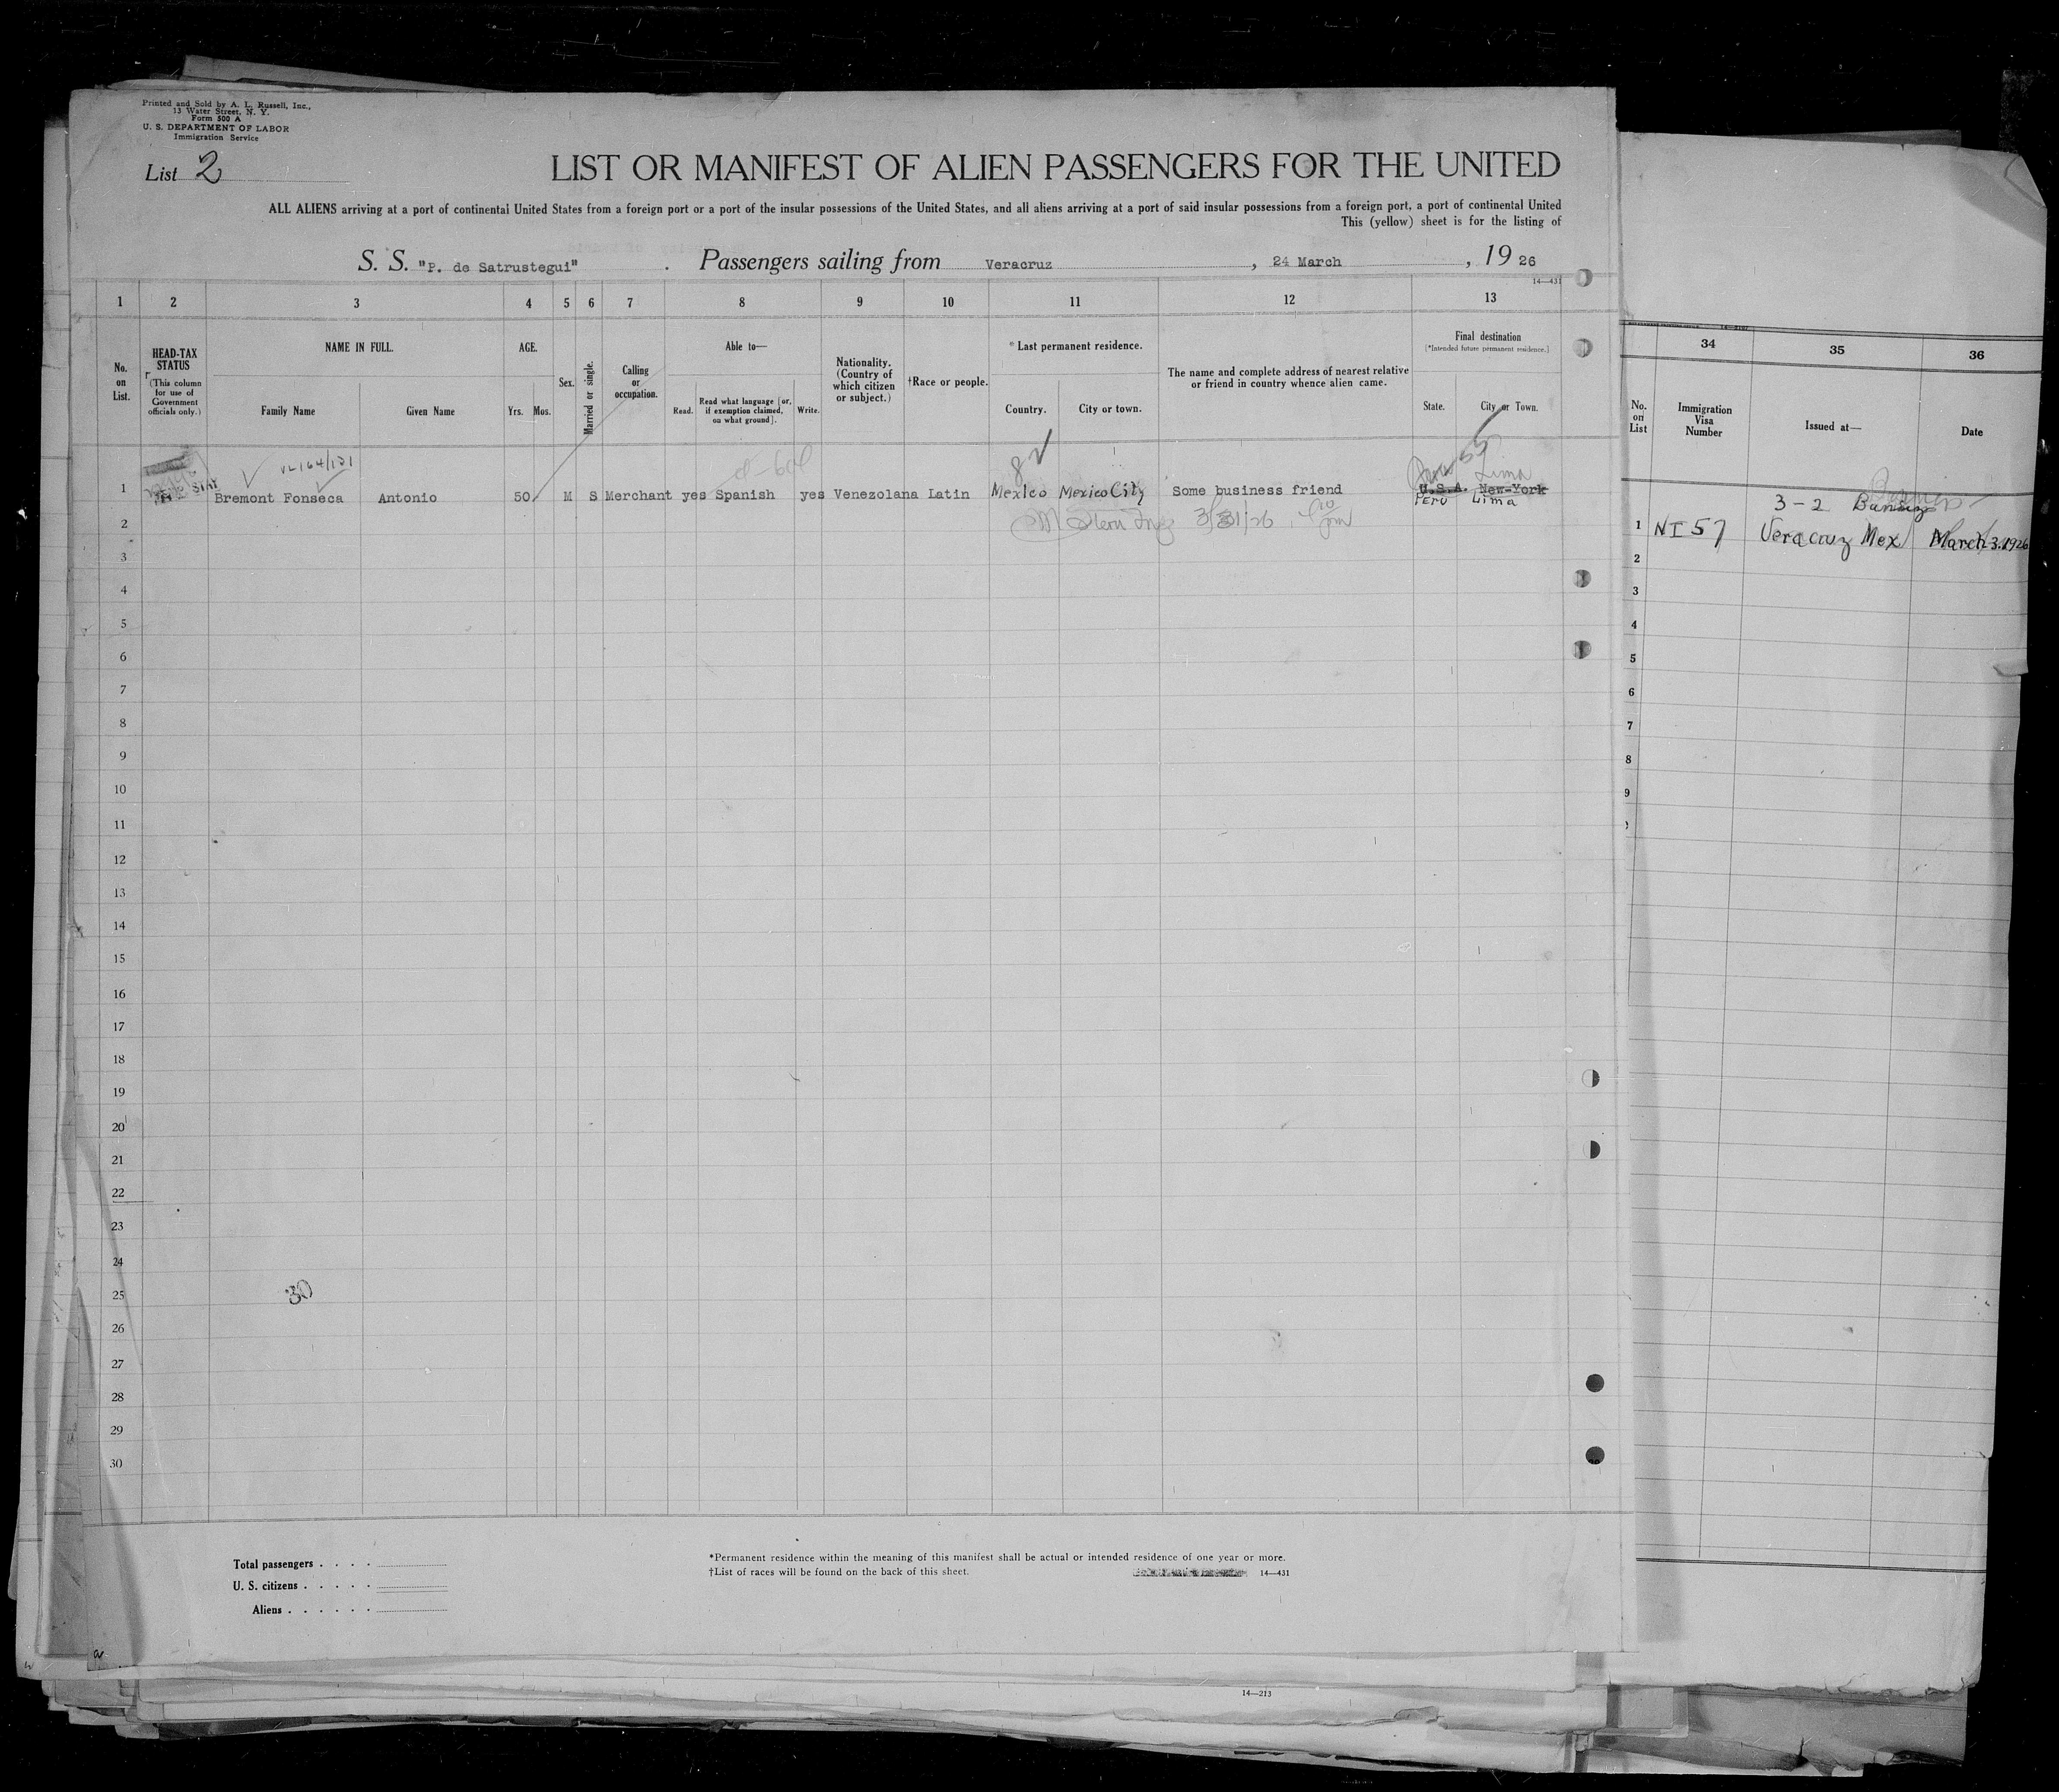 Printed and Sold by A. L. Russell, Inc.,
13 Water Street, N. Y.
Form 500 A
U. S. DEPARTMENT OF LABOR
Immigration Service
List 2
LIST OR MANIFEST OF ALIEN PASSENGERS FOR THE UNITED
ALL ALIENS arriving at a port of continental United States from a foreign port or a port of the insular possessions of the United States, and all aliens arriving at a port of said insular possessions from a foreign port, a port of continental United
This (yellow) sheet is for the listing of
S. S. "P. de Satrustegui" . Passengers sailing from Veracruz , 24 March , 19 26
14—431
1 2 3 4 5 6 7 8 9 10 11 12 13
No. on List.
HEAD-TAX STATUS
(This column for use of Government officials only.)
NAME IN FULL.
Family Name
Given Name
AGE.
Yrs. Mos.
Sex.
Married or single.
Calling or occupation.
Able to—
Read.
Read what language [or, if exemption claimed, on what ground].
Write.
Nationality. (Country of which citizen or subject.)
†Race or people.
* Last permanent residence.
Country.
City or town.
The name and complete address of nearest relative or friend in country whence alien came.
Final destination
[*Intended future permanent residence.]
State.
City or Town.
1 Bremont Fonseca Antonio 50 M S Merchant yes Spanish yes Venezolana Latin Mexico Mexico City Some business friend U.S.A. New-York
Lima
Peru Lima
2 3/31/26
3
4
5
6
7
8
9
10
11
12
13
14
15
16
17
18
19
20
21
22
23
24
25
30
26
27
28
29
30
Total passengers . . . .
U. S. citizens . . . . .
Aliens . . . . . .
*Permanent residence within the meaning of this manifest shall be actual or intended residence of one year or more.
†List of races will be found on the back of this sheet.
14—431
14—213
34 35 36
No. on List
Immigration Visa Number
Issued at—
Date
3-2
1 NI 57 Veracruz Mex March 3.1926
2
3
4
5
6
7
8
9